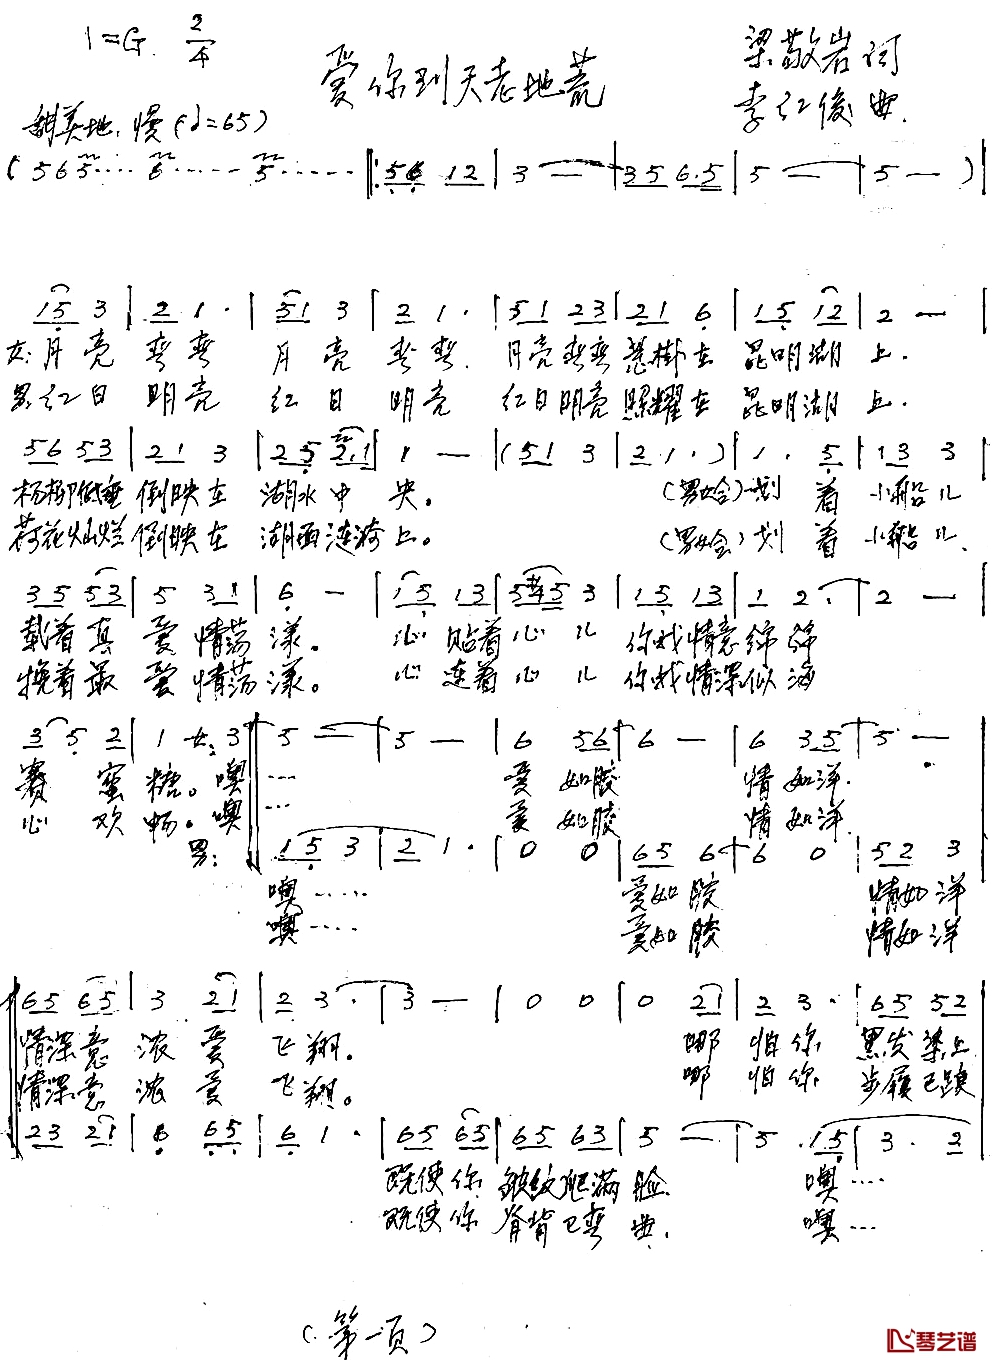 1=G 2/4
爱你到天老地荒
梁敬岩词
李红俊曲.
甜美地.慢(♩=65)
(5 6 5···· 6······ 5······ ‖: 5 6 1 2 | 3 — | 3 5 6·5 | 5 — | 5 — ) |
1 5 3 | 2 1 · | 5 1 3 | 2 1 · | 5 1 2 3 | 2 1 6 | 1 5 1 2 | 2 — |
女:月亮 弯弯 月亮 弯弯. 月亮弯弯悬掛在 昆明湖 上.
男:红日 明亮 红日 明亮 红日明亮照耀在 昆明湖 上.
5 6 5 3 | 2 1 3 | 2 5 2·1 | 1 — | (5 1 3 | 2 1 ·) | 1 · 5 | 1 3 3 |
杨柳低垂 倒映在 湖水中 央。 (男女合)划 着 小船儿
荷花灿烂 倒映在 湖面涟漪上。 (男女合)划 着 小船儿.
3 5 5 3 | 5 3 1 | 6 — | 1 5 1 3 | 5 #4 5 3 | 1 5 1 3 | 1 2 · | 2 — |
载着真 爱情荡 漾。 心 贴着心 儿 你我情意绵 绵
挽着最 爱情荡 漾。 心 连着心 儿 你我情深似 海
3 5 2 | 1 女:3 ‖ 5 — | 5 — | 6 5 6 | 6 — | 6 3 5 | 5 — |
赛 蜜 糖。噢 ···· 爱 如胶 情 如洋.
心 欢 畅。噢 ··· 爱 如胶 情 如洋.
男: 1 5 3 | 2 1 · | 0 0 | 6 5 6 | 6 0 | 5 2 3
噢····· 爱如 胶 情如洋
噢····· 爱如 胶 情如洋
6 5 6 5 | 3 2 1 | 2 3 · | 3 — | 0 0 | 0 2 1 | 2 3 · | 6 5 5 2
情深意 浓 爱 飞 翔. 哪 怕 你 黑发染上
情深意 浓 爱 飞 翔。 哪 怕 你 步履已踉
2 3 2 1 | 6 6 5 | 6 1 · | 6 5 6 5 | 6 5 6 3 | 5 — | 5 · 1 5 | 3 · 2
既使你 皱纹爬满 脸. 噢····
既使你 脊背已弯 曲. 噢···
(第一页)
琴艺谱